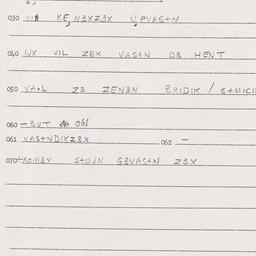 030 KE, N3XZ3X PVAS+N
040 VIL ZEX VAS+N D3 HENT
050 VA+L Z3 ZEN3N BRIDIK / S+MICI
060 — 3UT 061
061 VAS+NDIKZ3X 062 —
070 KOM3X S+OJN G3VAS+N Z3X